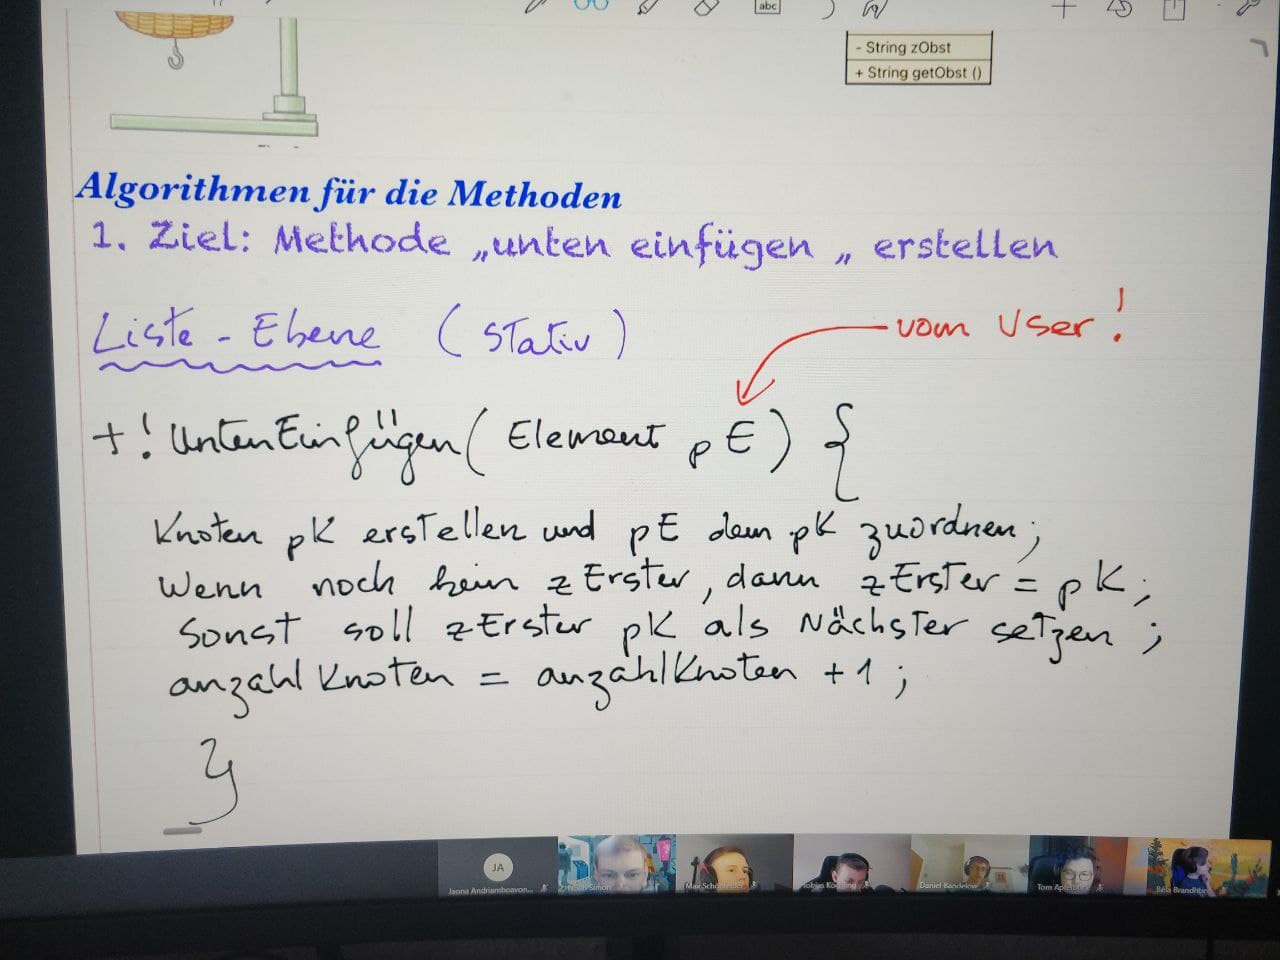 abc
- String zObst
+ String getObst ()
Algorithmen für die Methoden
1. Ziel: Methode „unten einfügen „ erstellen
Liste - Ebene (Stativ)
vom User!
+ ! UntenEinfügen( Element pE ) {
Knoten pK erstellen und pE dem pK zuordnen;
Wenn noch kein zErster, dann zErster = pK;
Sonst soll zErster pK als Nächster setzen;
anzahlKnoten = anzahlKnoten + 1;
}
JA
Jaona Andriamboavon...
Simon
Max
Tobias
Daniel Bandelow
Tom
Béla Brandhorst